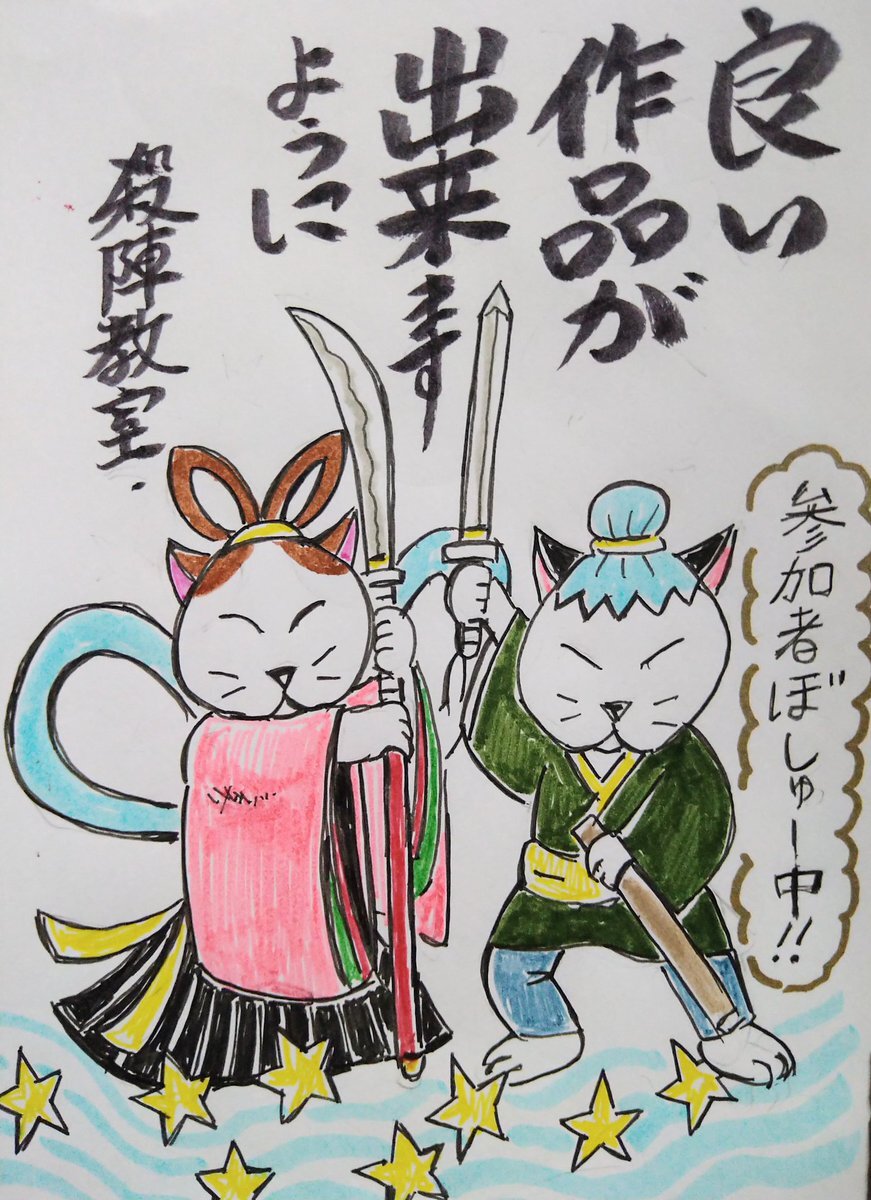 良い
作品が
出来ます
ように
殺陣教室.
参加者ぼしゅー中!!